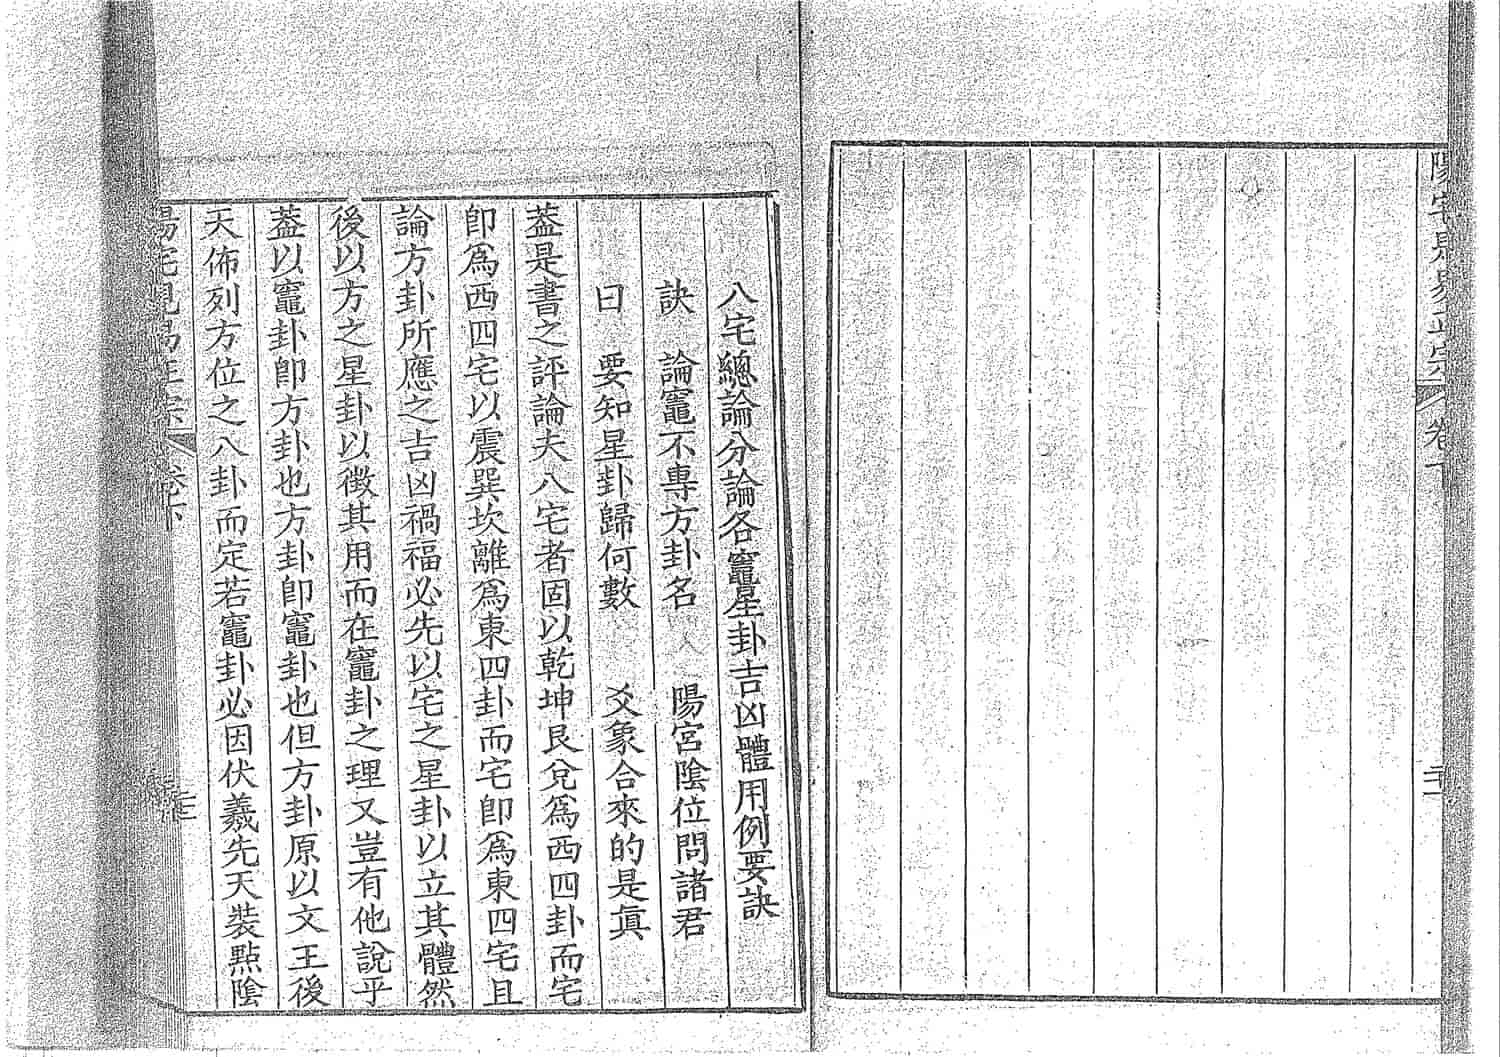 八宅總論分論各竈星卦吉凶體用例要訣
訣　論竈不專方卦名　陽宮陰位問諸君
曰　要知星卦歸何數　爻象合來的是眞
葢是書之評論夫八宅者固以乾坤艮兌爲西四卦而宅
卽爲西四宅以震巽坎離爲東四卦而宅卽爲東四宅且
論方卦所應之吉凶禍福必先以宅之星卦以立其體然
後以方之星卦以徵其用而在竈卦之理又豈有他說乎
葢以竈卦卽方卦也方卦卽竈卦也但方卦原以文王後
天佈列方位之八卦而定若竈卦必因伏羲先天裝㸃陰
卷下